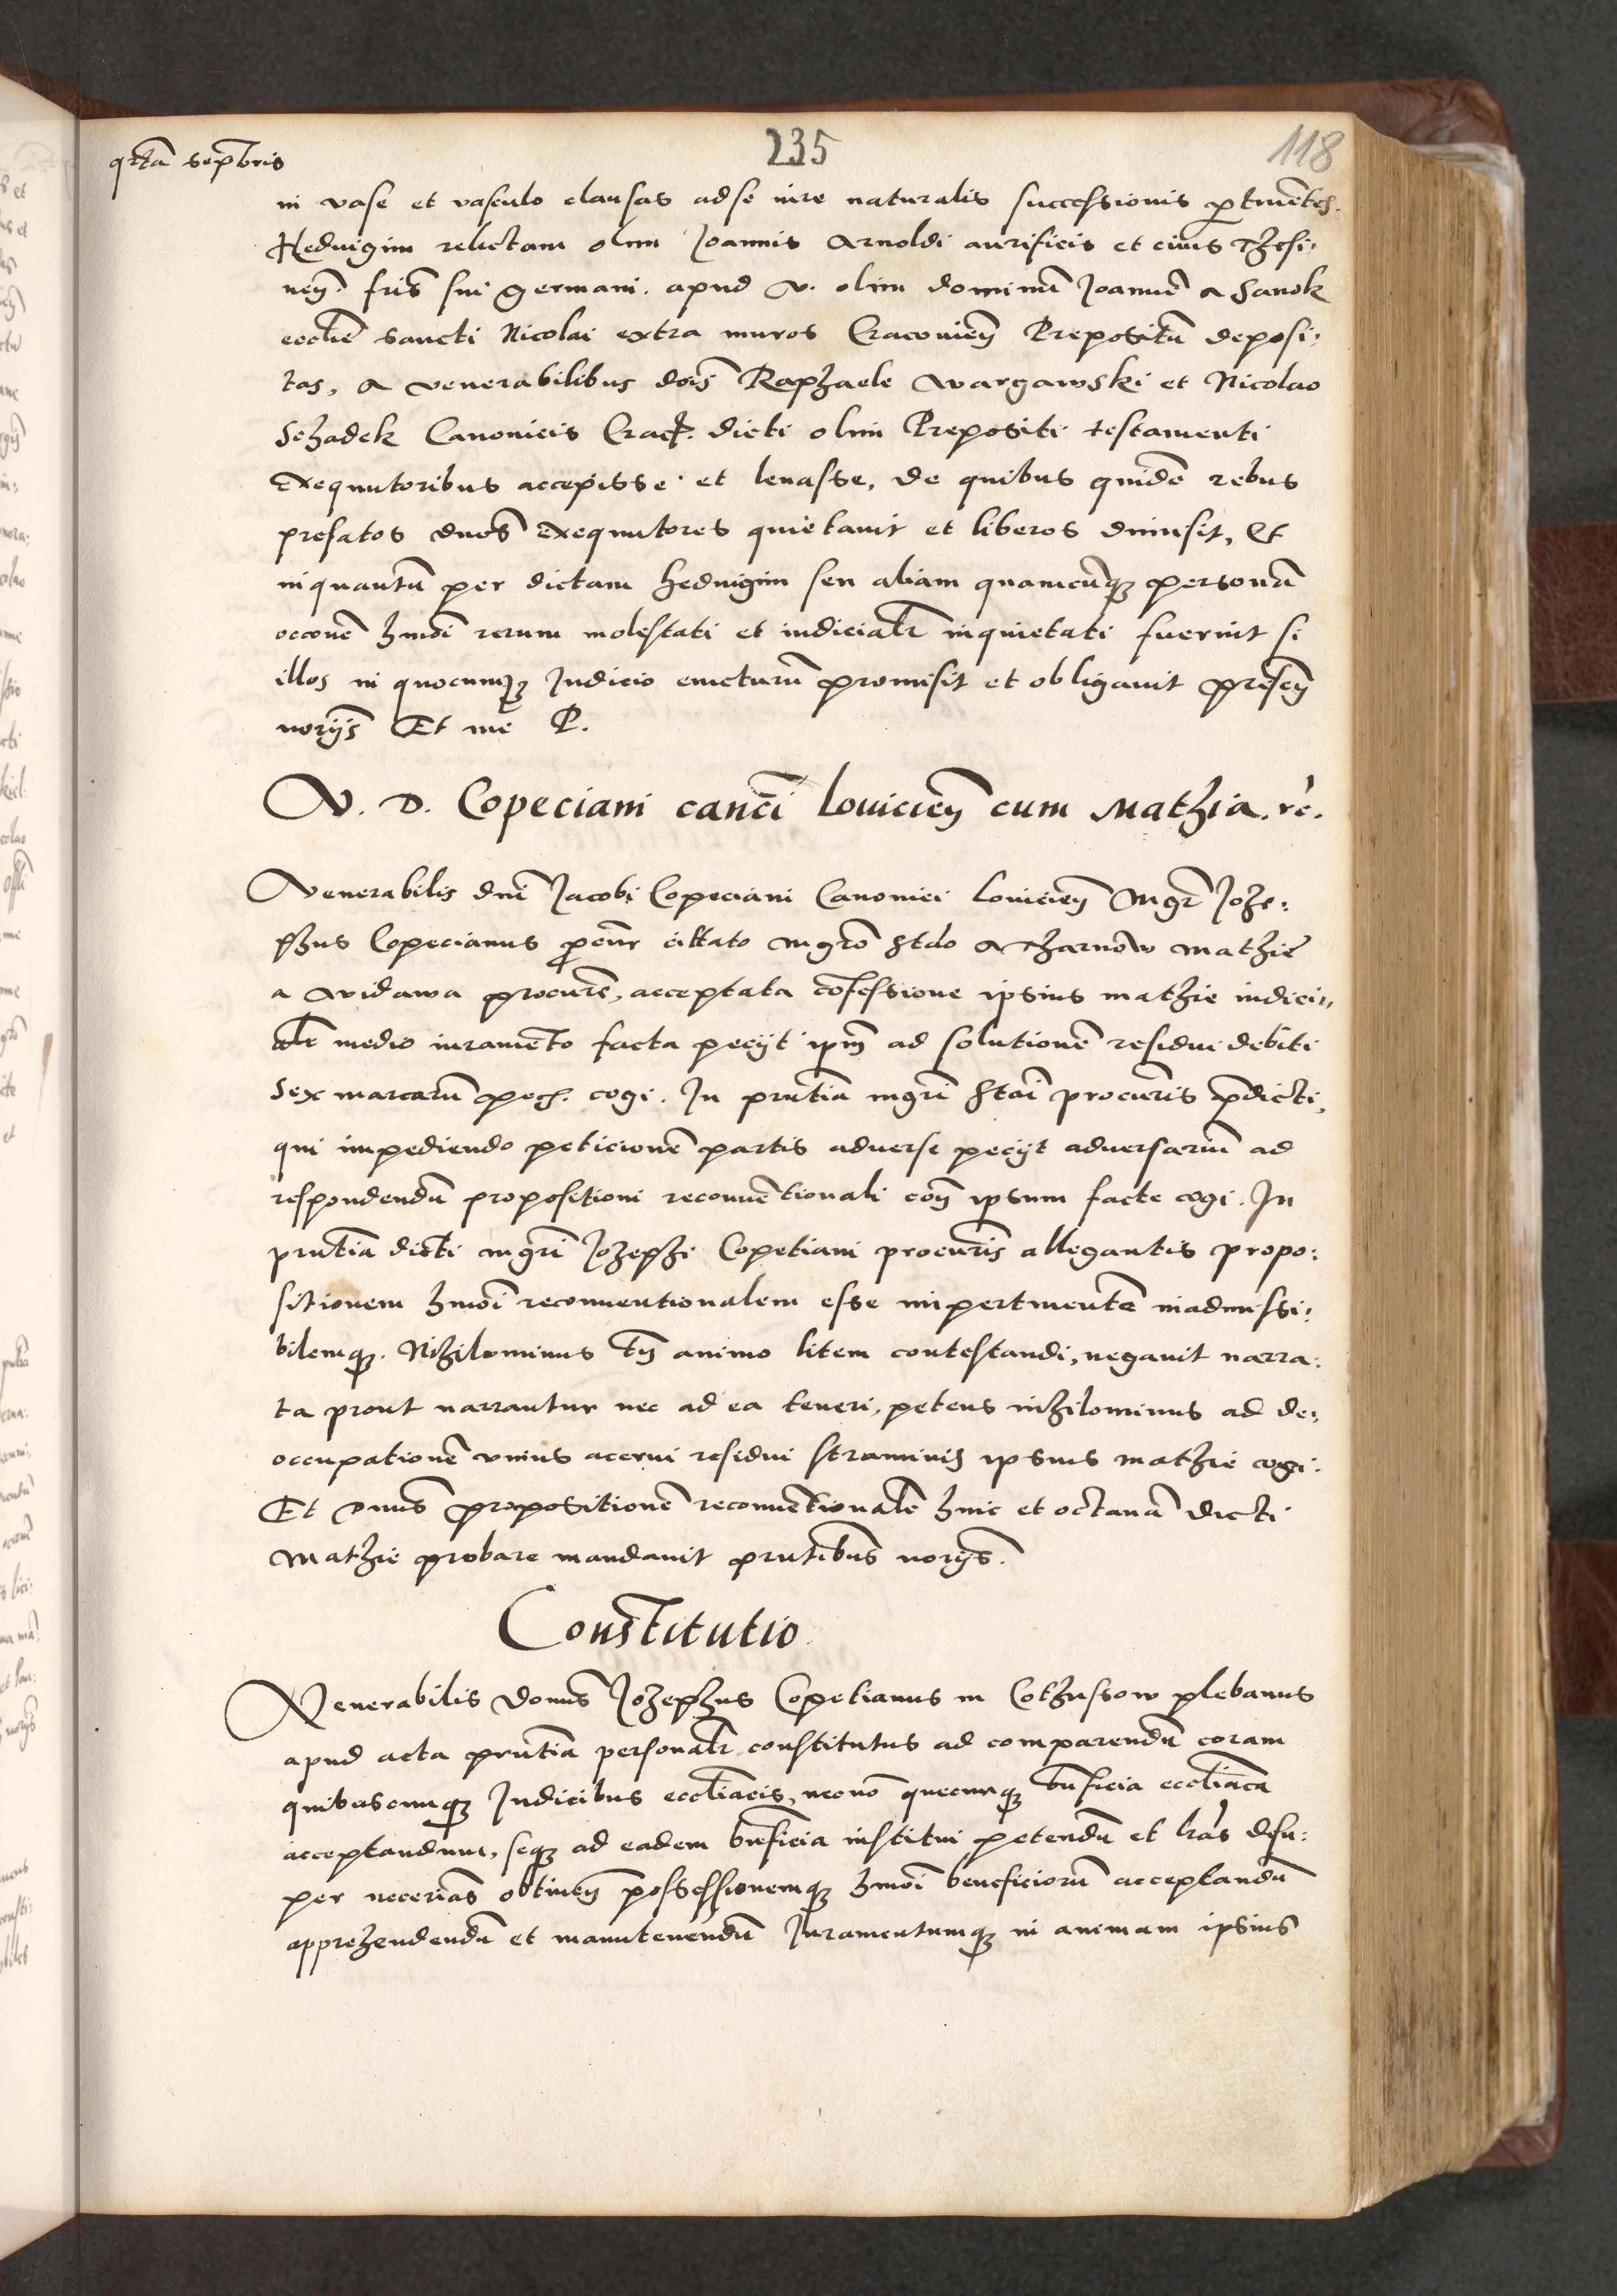 235
118
qrtā septēbris
in vase et vasculo clausas ad se iure naturalis successionis ptinētes
Hedvigim relictam olim Joannis Arnoldi aurificis et eius
fris̄ sui germani. apud V. olim dominū Joannē a Sanok
eccliē sancti Nicolai extra muros Cracovien̄ Prepositū deposi:
tas, a venerabilibus dnis̄ Raphaele Wargawski et Nicolao
Schadek Canonicis Crac. dicti olim Prepositi testamenti
exequutoribus accepisse et levasse, de quibus quidē rebus
prefatos dnos̄ exequutores quietavit et liberos dimisit, Et
inquantū per dictam Hedvigim seu aliam quamcūq; personā
occōnē hmōi rerum molestati et iudicialr̄ inquietati fuerint se
illos in quocumq; Judicio evicturū promisit et obligavit presen̄
notrijs̄ Et me P.
V. D. Copeciani canc̄i Lovicien̄ cum Mathia. re.
Venerabilis dn̄i Jacobi Copeciani Canonici Lovicien̄ Mgr̄ Joze:
phus Copecianus pcur̄ cittato mgro Stao a Tharnow Mathie
a Widawa procure, acceptata cōfessione ipsius Mathie iudici:
alr̄ medio iuramēto facta peciit ipm̄ ad solutionē residui debiti
sex marcarū pec. cogi. In prntia mgri Stai procuris pdicti,
qui impediendo peticionē partis adverse peciit adversariū ad
respondendū propositioni reconvētionali con̄ ipsum facte cogi. In
prntia dicti mgri Jozephi Copetiani procuris allegantis propo:
sitionem hmōi reconventionalem esse impertinentē inadmissi:
bilemq;. Nihilominus tn̄ animo litem contestandi, negavit narra:
ta prout narrantur nec ad ea teneri, petens nihilominus ad de:
occupationē unius acervi residui straminis ipsius Mathie cogi.
Et Dnus̄ propositionē reconvētionalē hinc et octavā dicti
Mathie probare mandavit prntibus notrijs̄.
Constitutio
Venerabilis Domns̄ Jozephus Copetianus in Cothussow plebanus
apud acta prntia personalr̄ constitutus ad comparendū coram
quibuscumq; Judicibus eccliacis, necnō quecumq; bnficia eccliaca
acceptandum, seq; ad eadem bnficia institui petendū et lras desu:
per necerias obtinen̄ possessionemq; hmōi beneficiorū acceptandū
apprehendendū et manutenendū Juramentumq; in animam ipsius